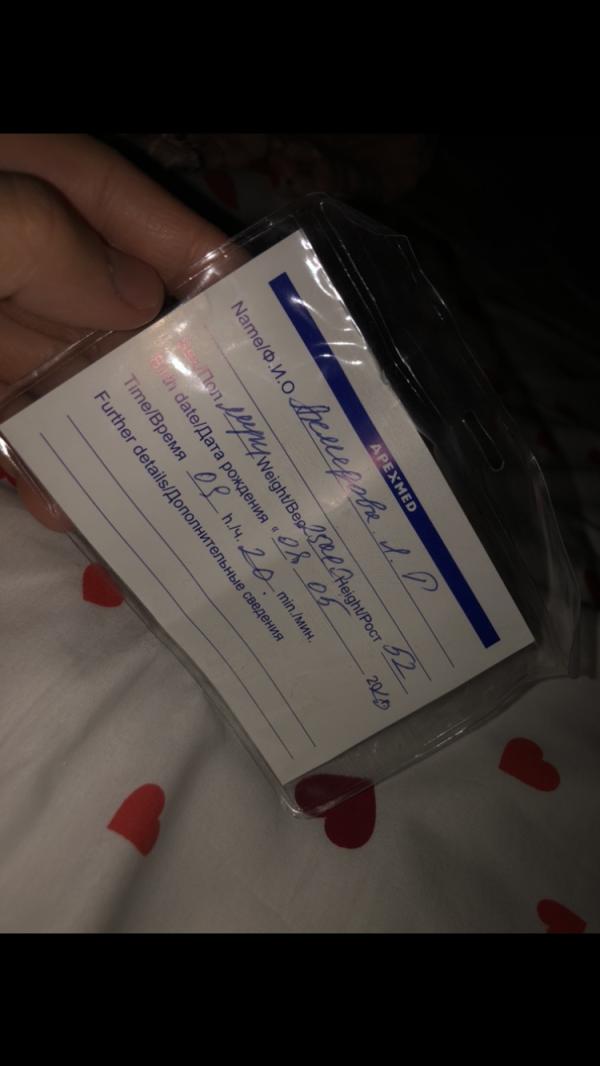 APEXMED
Name/Ф.И.О А. Р
Sex/Пол Weight/Вес Height/Рост 52
Birth date/Дата рождения " 08 05 20
Time/Время 08 h./ч. 20 min./мин.
Further details/Дополнительные сведения